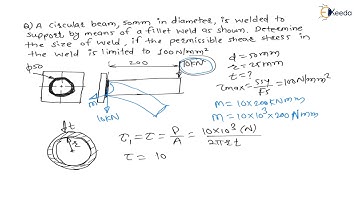 Q) A circular beam, 50mm in diameter, is welded to
support by means of a fillet weld as shown. Determine
the size of weld, if the permissible shear stress in
the weld is limited to 100N/mm²
Keeda
ϕ50
200
10KN
M
10KN
d = 50mm
r = 25mm
t = ?
τmax = Ssy/FS = 100N/mm²
M = 10×200KNmm
M = 10×10³×200Nmm
t
r
τ₁ = τ = P/A = 10×10³ (N)/2πrt
τ = 10